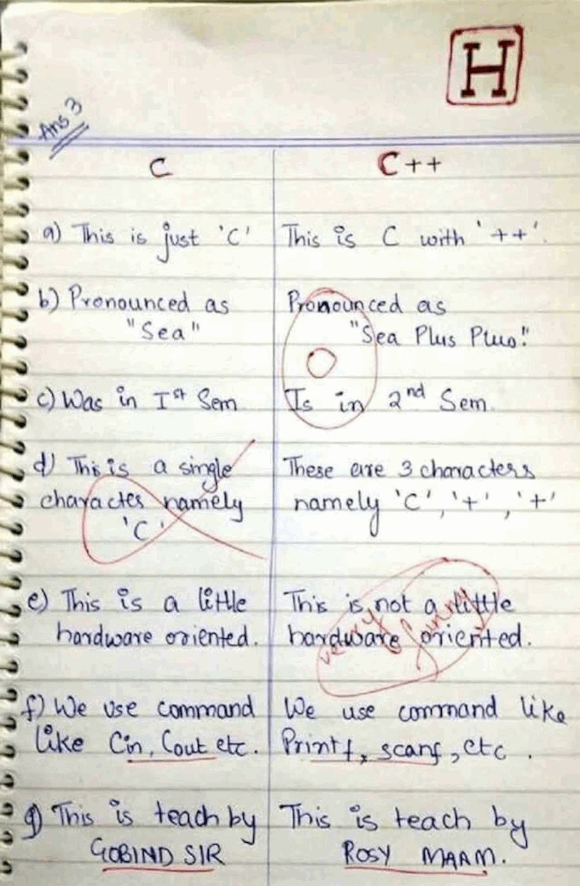 H
Ans 3
C
C++
a) This is just 'C'
This is C with '++'.
b) Pronounced as
"Sea"
Pronounced as
"Sea Plus Plus!"
c) Was in Ist Sem
Is in 2nd Sem.
0
d) This is a single
character namely
'C'
These are 3 characters
namely 'C', '+', '+'
e) This is a little
hardware oriented.
This is not a little
hardware oriented.
very funny
f) We use command
like Cin, Cout etc.
We use command like
Printf, scanf, etc.
g) This is teach by
GOBIND SIR
This is teach by
ROSY MAAM.